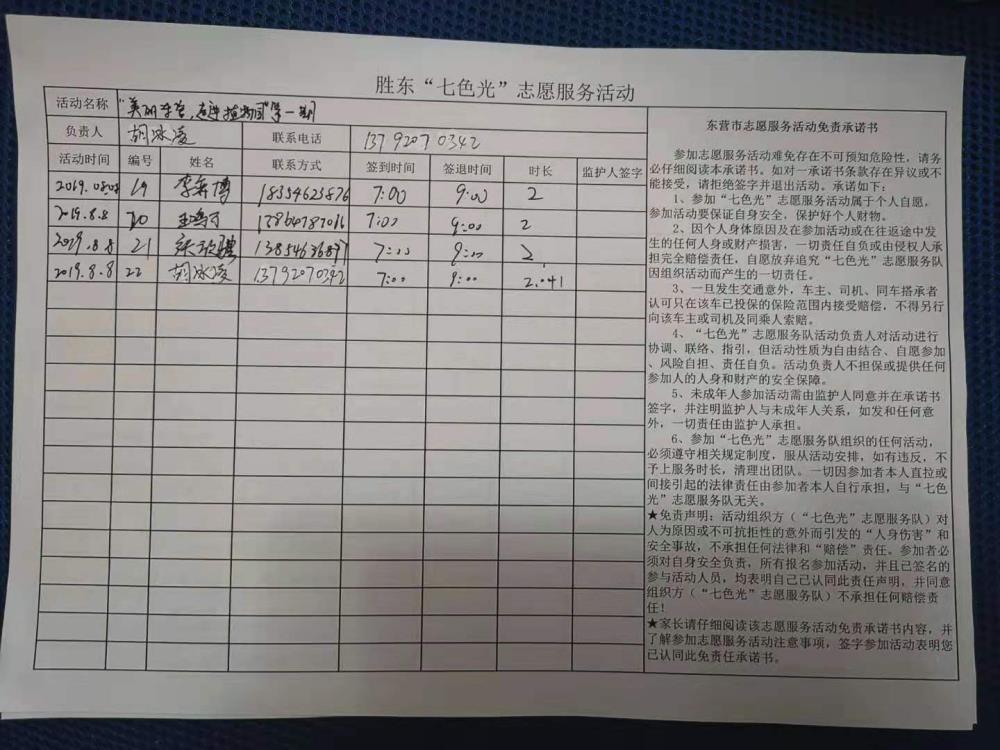 胜东“七色光”志愿服务活动
活动名称 “美丽东营, 第一期
负责人 胡冰凌 联系电话 13792070342
活动时间 编号 姓名 联系方式 签到时间 签退时间 时长 监护人签字
2019.08.08 19 李 博 18354623876 7:00 9:00 2
2019.8.8 20 7:00 9:00 2
2019.8.8 21 7:00 9:00 2
2019.8.8 22 胡冰凌 13792070342 7:00 9:00 2.041
东营市志愿服务活动免责承诺书
参加志愿服务活动难免存在不可预知危险性，请务
必仔细阅读本承诺书。如对一承诺书条款存在异议或不
能接受，请拒绝签字并退出活动。承诺如下：
1、参加“七色光”志愿服务活动属于个人自愿，
参加活动要保证自身安全，保护好个人财物。
2、因个人身体原因及在参加活动或在往返途中发
生的任何人身或财产损害，一切责任自负或由侵权人承
担完全赔偿责任，自愿放弃追究“七色光”志愿服务队
因组织活动而产生的一切责任。
3、一旦发生交通意外，车主、司机、同车搭承者
认可只在该车已投保的保险范围内接受赔偿，不得另行
向该车主或司机及同乘人索赔。
4、“七色光”志愿服务队活动负责人对活动进行
协调、联络、指引，但活动性质为自由结合、自愿参加
、风险自担、责任自负。活动负责人不担保或提供任何
参加人的人身和财产的安全保障。
5、未成年人参加活动需由监护人同意并在承诺书
签字，并注明监护人与未成年人关系，如发和任何意
外，一切责任由监护人承担。
6、参加“七色光”志愿服务队组织的任何活动，
必须遵守相关规定制度，服从活动安排，如有违反，不
予上服务时长，清理出团队。一切因参加者本人直拉或
间接引起的法律责任由参加者本人自行承担，与“七色
光”志愿服务队无关。
★免责声明：活动组织方（“七色光”志愿服务队）对
人为原因或不可抗拒性的意外而引发的“人身伤害”和
安全事故，不承担任何法律和“赔偿”责任。参加者必
须对自身安全负责，所有报名参加活动，并且已签名的
参与活动人员，均表明自己已认同此责任声明，并同意
组织方（“七色光”志愿服务队）不承担任何赔偿责
任！
★家长请仔细阅读该志愿服务活动免责承诺书内容，并
了解参加志愿服务活动注意事项，签字参加活动表明您
已认同此免责任承诺书。